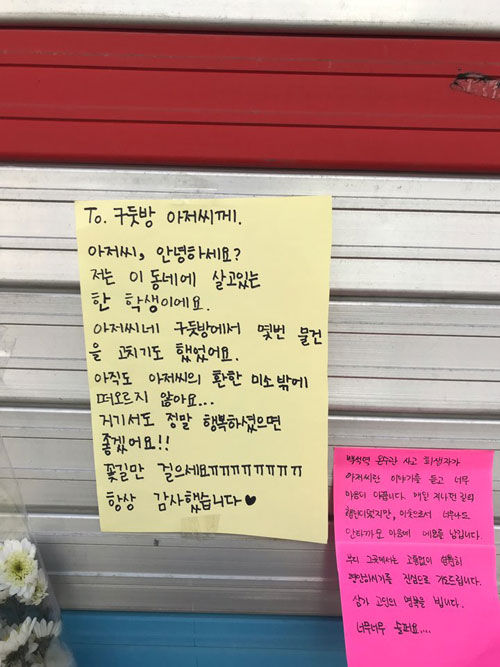 To. 구둣방 아저씨께.
아저씨, 안녕하세요?
저는 이 동네에 살고있는
한 학생이에요.
아저씨네 구둣방에서 몇번 물건
을 고치기도 했었어요.
아직도 아저씨의 환한 미소 밖에
떠오르지 않아요...
거기서도 정말 행복하셨으면
좋겠어요!!
꽃길만 걸으세요ㅠㅠㅠㅠㅠㅠㅠㅠ
항상 감사했습니다♥
백석역 온수관 사고 희생자가
아저씨란 이야기를 듣고 너무
마음이 아픕니다. 매일 지나가던 길의
행인이었지만, 이웃으로서 너무나도
안타까운 마음에 메모를 남깁니다.
부디 그곳에서는 고통없이 성함히
평안하시기를 진심으로 기도드립니다.
삼가 고인의 명복을 빕니다.
너무너무 슬퍼요....